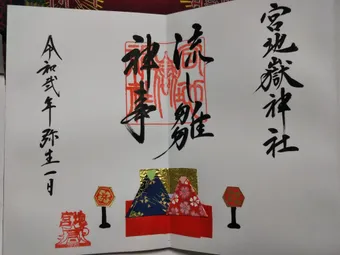 宮地嶽神社
流し雛
神事
令和弐年 弥生一日